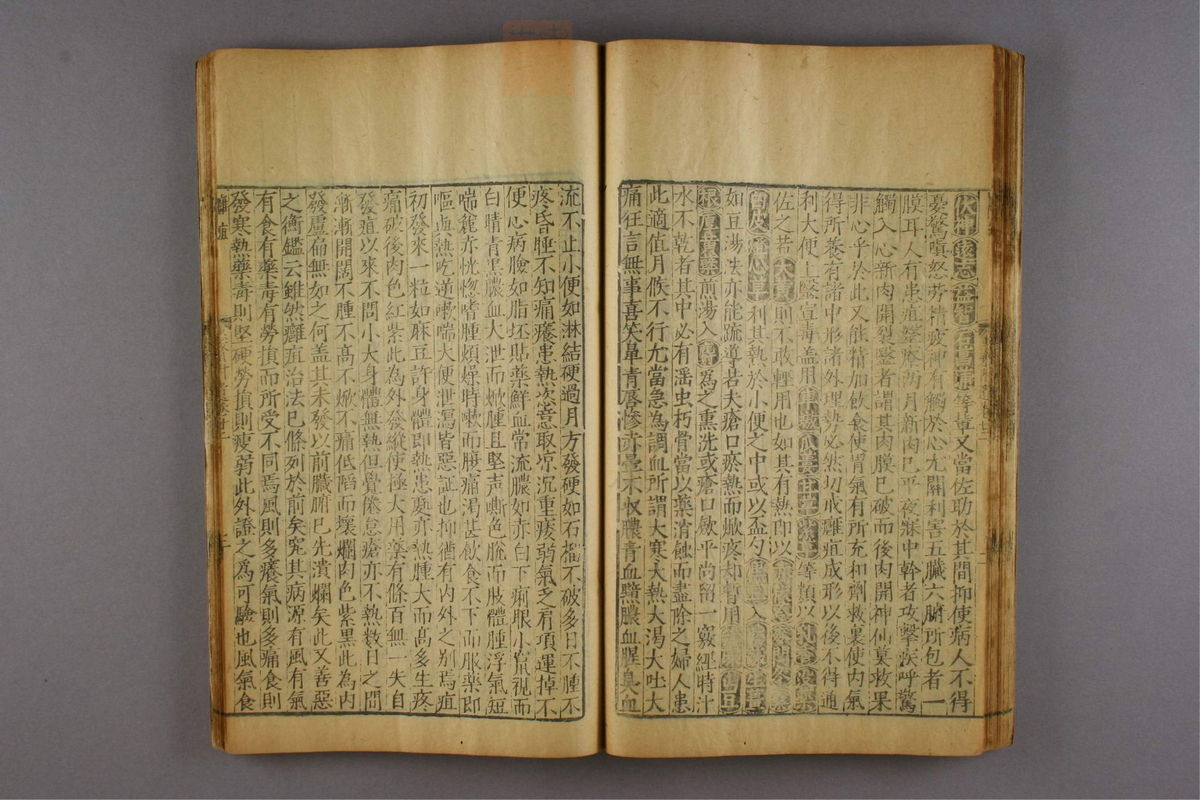 茯神遠志益智石菖蒲等輩又當佐助於其間抑使病人不得
憂驚嗔怒勞神疲神有觸於心尤關利害五臟六腑所包者一
膜耳人有患疽瘥療兩月新肉已平夜寐中幹者攻擊疾呼驚
觸入心新肉開裂瘥者謂其肉膜已破而後內開神仙莫救果
非心乎於此又能精加飲食使胃氣有所充和劑救裏使內氣
得所養有諸中形諸外理勢必然切戒癰疽成形以後不得通
利大便上醫宣毒蓋用甘草等類以
佐之若大黃則不敢輕用也如其有熱即以
燈心草利其熱於小便之中或以盃勺黑豆入生甘草
如豆湯法亦能疏導若夫瘡口瘀熱而焮疼却暫用
根厚黃蘗煎湯入為之熏洗或瘡口斂平尚留一竅經時汁
水不乾者其中必有滛虫朽骨當以藥消蝕而盡除之婦人患
此適值月候不行尤當急為調血所謂大寒大熱大湯大吐大
痛狂言無事喜笑鼻青唇慘赤暈不收膿青血黯膿血腥臭血
流不止小便如淋結硬過月方發硬如石榴不破多日不腫不
疼昏睡不知痛癢患熱恣意取凉沉重痿弱氣乏肩項運掉不
便心病臉如脂坯貼藥鮮血常流膿如赤白下痢眼小冗視而
白睛青黑膿血大泄而焮腫且堅声嘶色脫而肢體腫浮氣短
喘麄赤恍惚嗜腫煩燥時嗽而腰痛渴甚飲食不下而服藥即
嘔歯熱吃逆嘶喘大便泄瀉皆惡証也抑猶有內外之别焉疽
初發來一粒如麻豆許身體即熱患處亦熱腫大而高多生疼
痛破後肉色紅紫此為外發縱使極大用藥有條百無一失自
發疽以來不問小大身體無熱但覺倦怠瘡亦不熱数日之間
漸漸開闊不腫不高不焮不痛低陷而壞爛肉色紫黑此為內
發盧扁無如之何蓋其未發以前臟腑已先潰爛矣此又善惡
之衡鑑云雖然癰疽治法已條列於前矣究其病源有風有氣
有食有藥毒有勞損而所受不同焉風則多癢氣則多痛食則
發寒熱藥毒則堅硬勞損則瘦弱此外證之為可驗也風氣食
癰疽